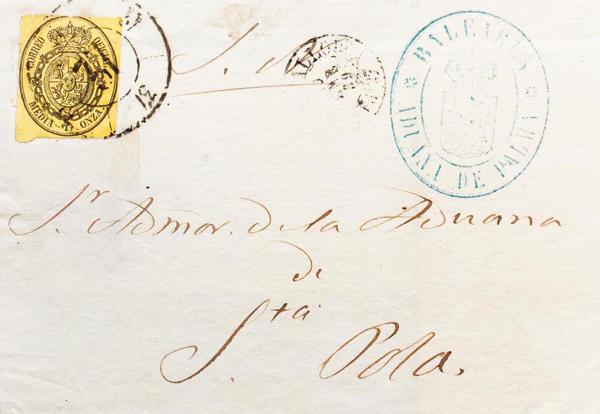 CORREO OFICIAL
MEDIA ONZA.
31
S. N.
BALEARES
ADUANA DE PALMA
Sr. Admor. de la Aduana
de
Sta
S. Pola.